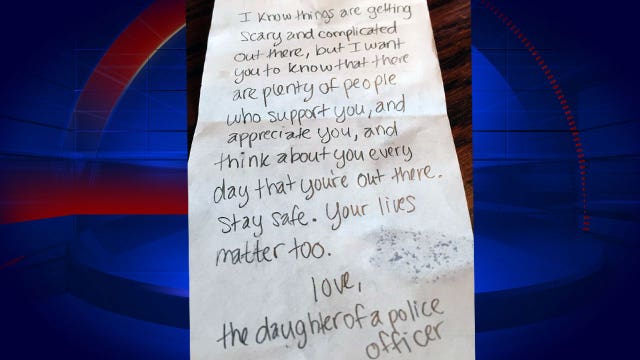 I know things are getting
scary and complicated
out there, but I want
you to know that there
are plenty of people
who support you, and
appreciate you, and
think about you every
day that you're out there.
Stay safe. Your lives
matter too.
love,
the daughter of a police
officer